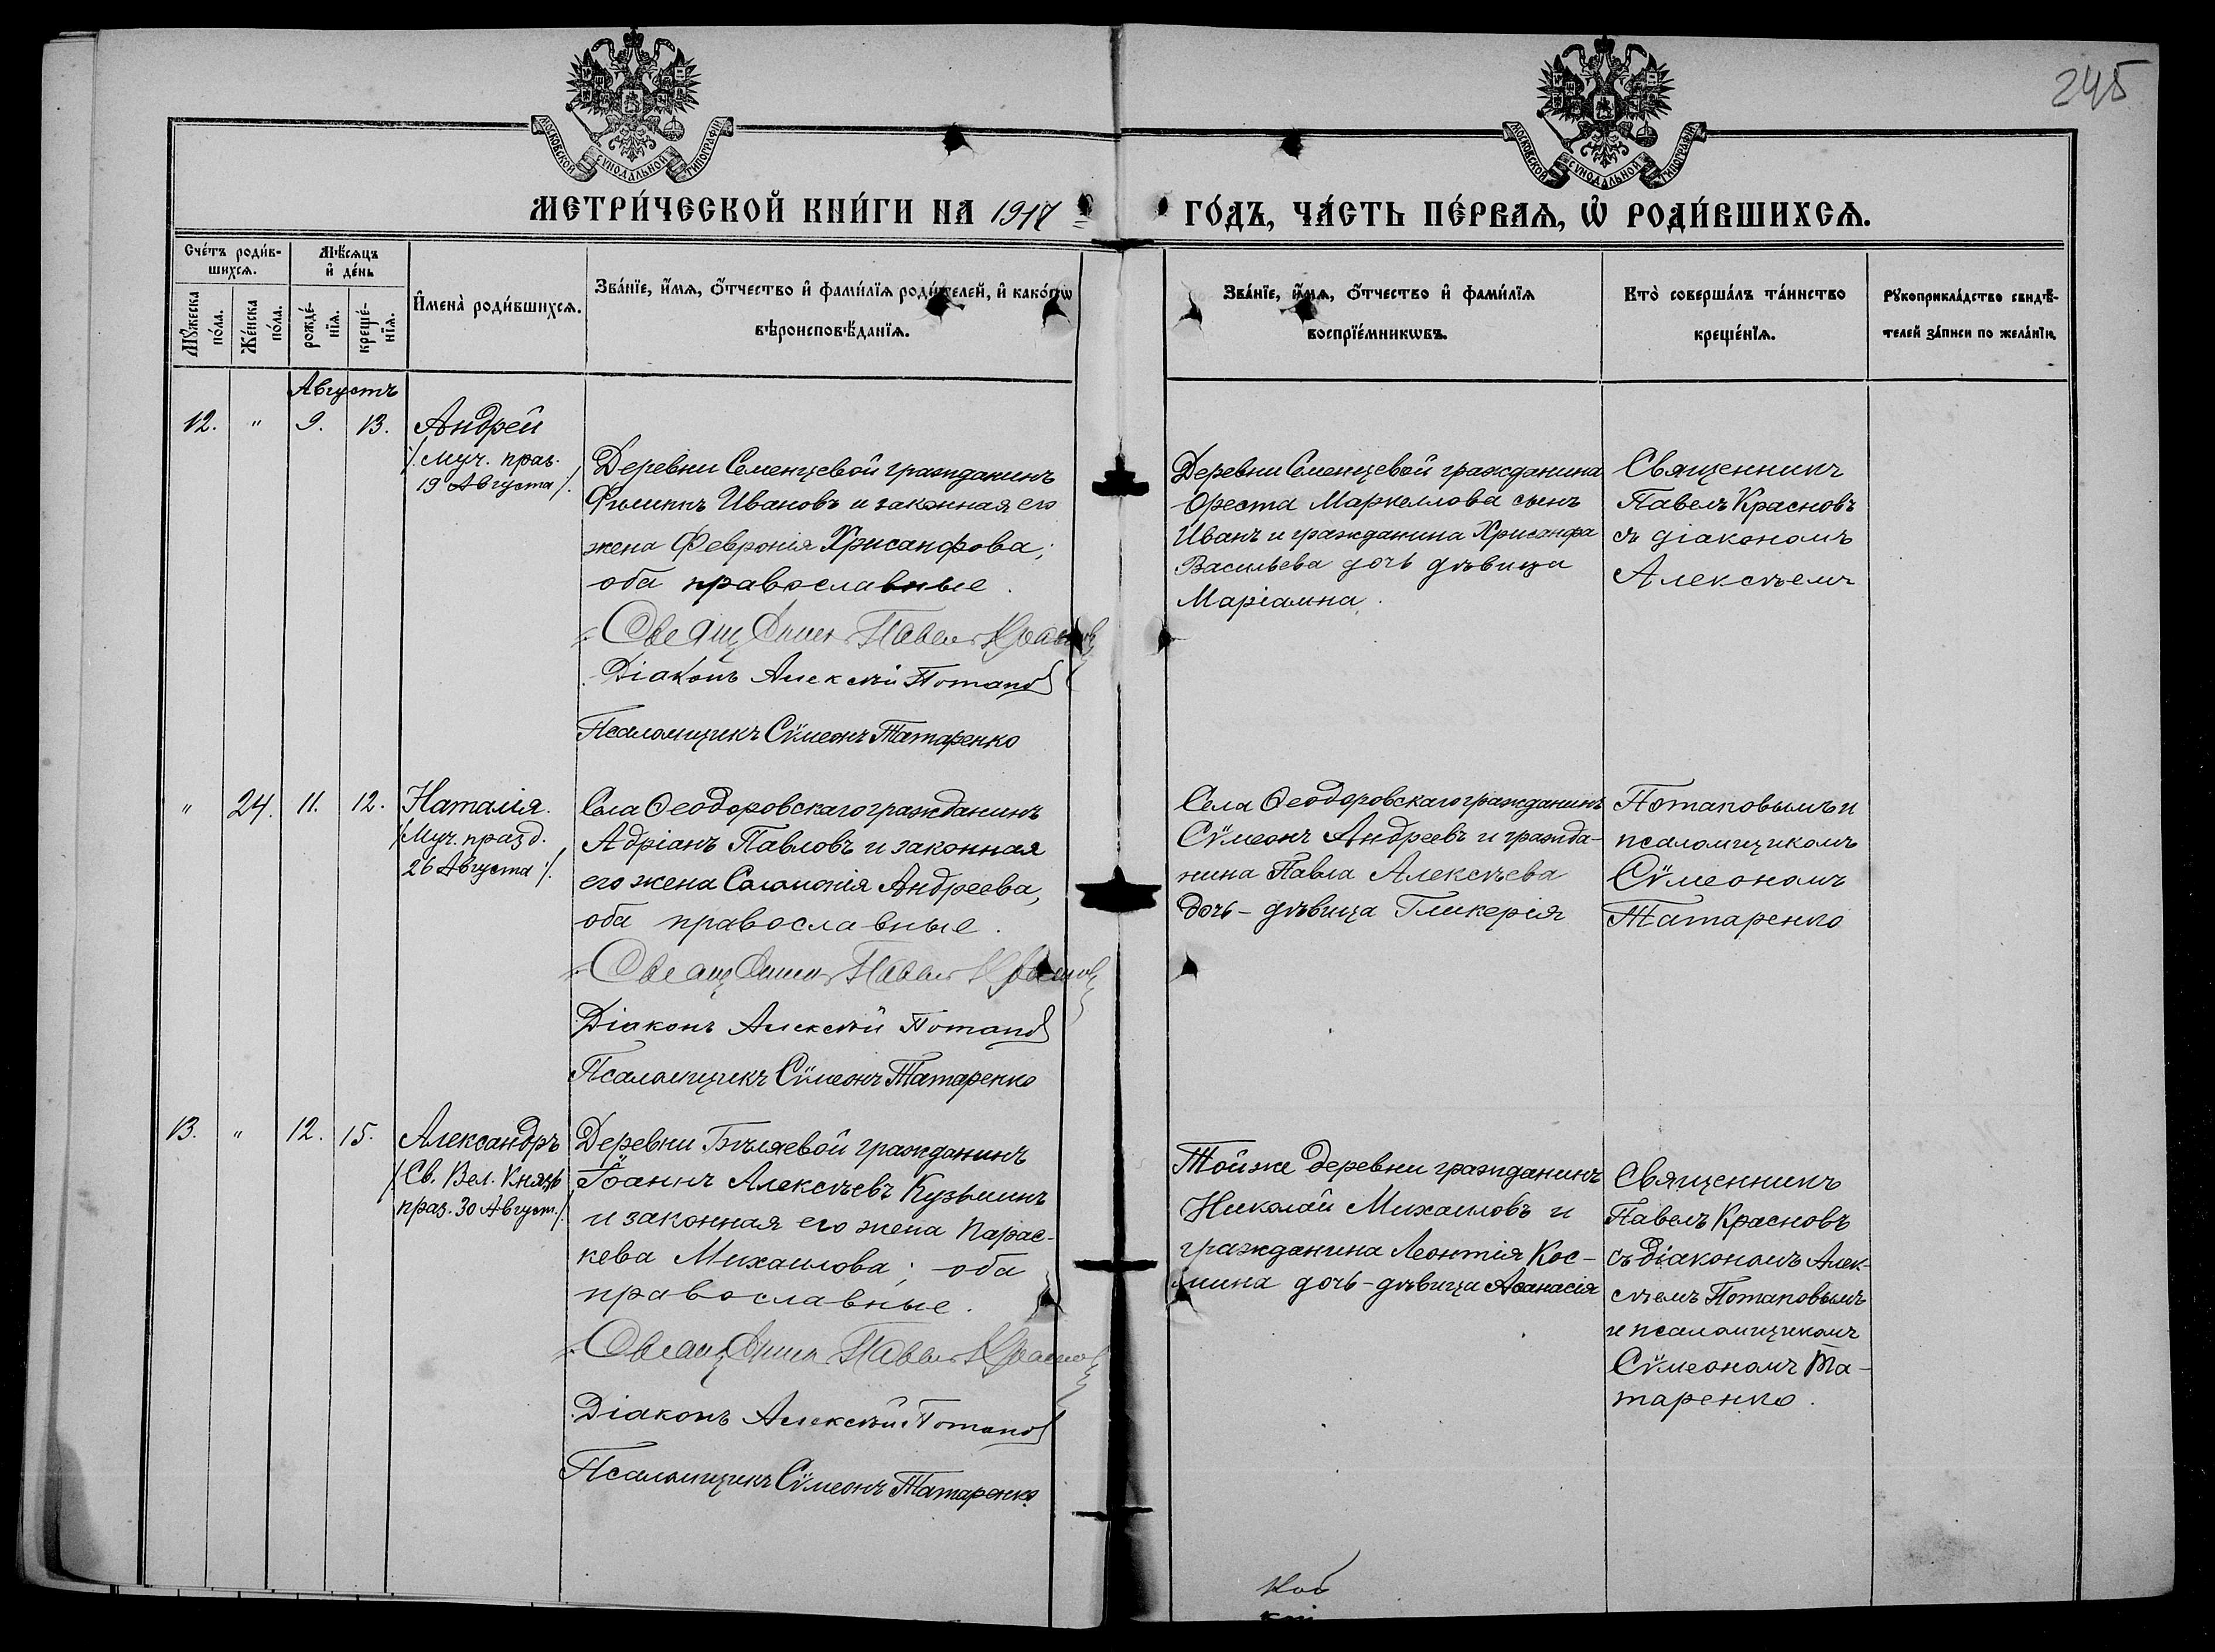 245
МОСКОВСКОЙ СѴНОДАЛЬНОЙ ТИПОГРАФІИ
МОСКОВСКОЙ СѴНОДАЛЬНОЙ ТИПОГРАФІИ
МЕТРИ́ЧЕСКОЙ КНИ́ГИ НА 1917
ГО́ДЪ, ЧА́СТЬ ПЕ́РВАѦ, Ѡ҆ РОДИ́ВШИХСѦ.
Сче́тъ роди́в-
шихсѧ.
Мѣ́сѧцъ
и҆ де́нь
Мꙋ́жеска
по́ла.
Же́нска
по́ла.
рожде́-
нїѧ.
креще́-
нїѧ.
И҆мена̀ роди́вшихсѧ.
Зва́нїе, и҆́мѧ, ѻ҆́тчество и҆ фами́лїѧ роди́телей, и҆ како́гѡ
вѣроисповѣ́данїѧ.
Зва́нїе, и҆́мѧ, ѻ҆́тчество и҆ фами́лїѧ
воспрїе́мникѡвъ.
Кто̀ соверша́лъ та́инство
креще́нїѧ.
Рꙋкоприкла́дство свидѣ́-
телей за́писи по жела́нїю.
Августъ
12. " 9. 13. Андрей
/. муч. праз.
19 Августа /.
Деревни Семенцевой гражданинъ
Филиппъ Ивановъ и законная его
жена Февронія Хрисанфова;
оба православные.
Священник Павел Краснов
Діаконъ Алексѣй Потапов
Псаломщикъ Сѵмеонъ Татаренко
Деревни Семенцевой гражданина
Ореста Маркеллова сынъ
Иванъ и гражданина Хрисанфа
Васильева дочь дѣвица
Маріамна.
Священникъ
Павелъ Красновъ
съ діакономъ
Алексѣемъ
" 24. 11. 12. Наталія.
/Муч. празд.
26 Августа /.
Села Ѳеодоровскаго гражданинъ
Адріанъ Павловъ и законная
его жена Соломонія Андреева,
оба православные.
Священник Павел Краснов
Діаконъ Алексѣй Потапов
Псаломщикъ Сѵмеонъ Татаренко
Села Ѳеодоровскаго гражданинъ
Сѵмеонъ Андреевъ и гражда-
нина Павла Алексѣева
дочь - дѣвица Гликерія
Потаповымъ и
псаломщикомъ
Сѵмеономъ
Татаренко
13. " 12. 15. Александръ
/Св. Вел. Князь
праз. 30 Август./.
Деревни Бѣляевой гражданинъ
Іоаннъ Алексѣевъ Кузьминъ
и законная его жена Парас-
кева Михаилова; оба
православные.
Священник Павел Краснов
Діаконъ Алексѣй Потапов
Псаломщикъ Сѵмеонъ Татаренко
Той же деревни гражданинъ
Николай Михаиловъ и
гражданина Леонтія Кос-
мина дочь - дѣвица Аѳанасія
Священникъ
Павелъ Красновъ
съ діакономъ Алек-
сѣемъ Потаповымъ
и псаломщикомъ
Сѵмеономъ Та-
таренко.